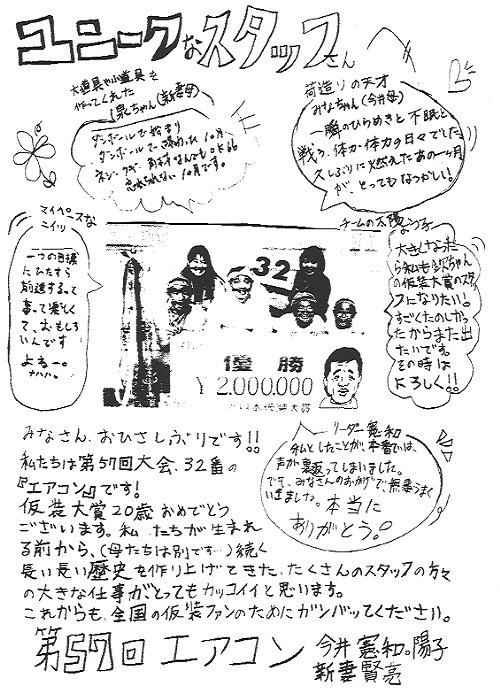 ユニークなスタッフさん
大道具や小道具を
作ってくれた
泉ちゃん(新妻母)
ダンボールで始まり
ダンボールで終わった10月。
ネジ・クギ・あげすなんでもOKよ
忘れられない10月です。
荷造りの天才
みなちゃん(今井母)
一瞬のひらめきと不眠と
戦う、体力・体力の日々でした
久しぶりに燃えたあの一ヶ月
が、とってもなつかしい!
マイペースな
ニイツ
一つの目標
にひたすら
前進するって
事って楽しく
て、おもしろ
いんです
よねー。
ナハハ。
チームの太陽
よう子
大きくなった
ら私も欽ちゃん
の仮装大賞のスタッ
フになりたい!
すごくたのしかっ
たからまた出
たいです。
その時は
よろしく!!
32
優勝
¥2,000,000
日本仮装大賞
リーダー憲和
私としたことが、本番では、
声が裏返ってしまいました。
です、みなさんのおかげで、無事うまく
いきました。本当に
ありがとう。
みなさん、おひさしぶりです!!
私たちは第57回大会、32番の
『エアコン』です!
仮装大賞20歳おめでとう
ございます。私たちが生まれ
る前から、(母たちは別です…)続く
長い長い歴史を作り上げてきた、たくさんのスタッフの方々
の大きな仕事がとってもカッコイイと思います。
これからも、全国の仮装ファンのためにガンバッてください。
第57回エアコン
今井憲和。陽子
新妻賢亮